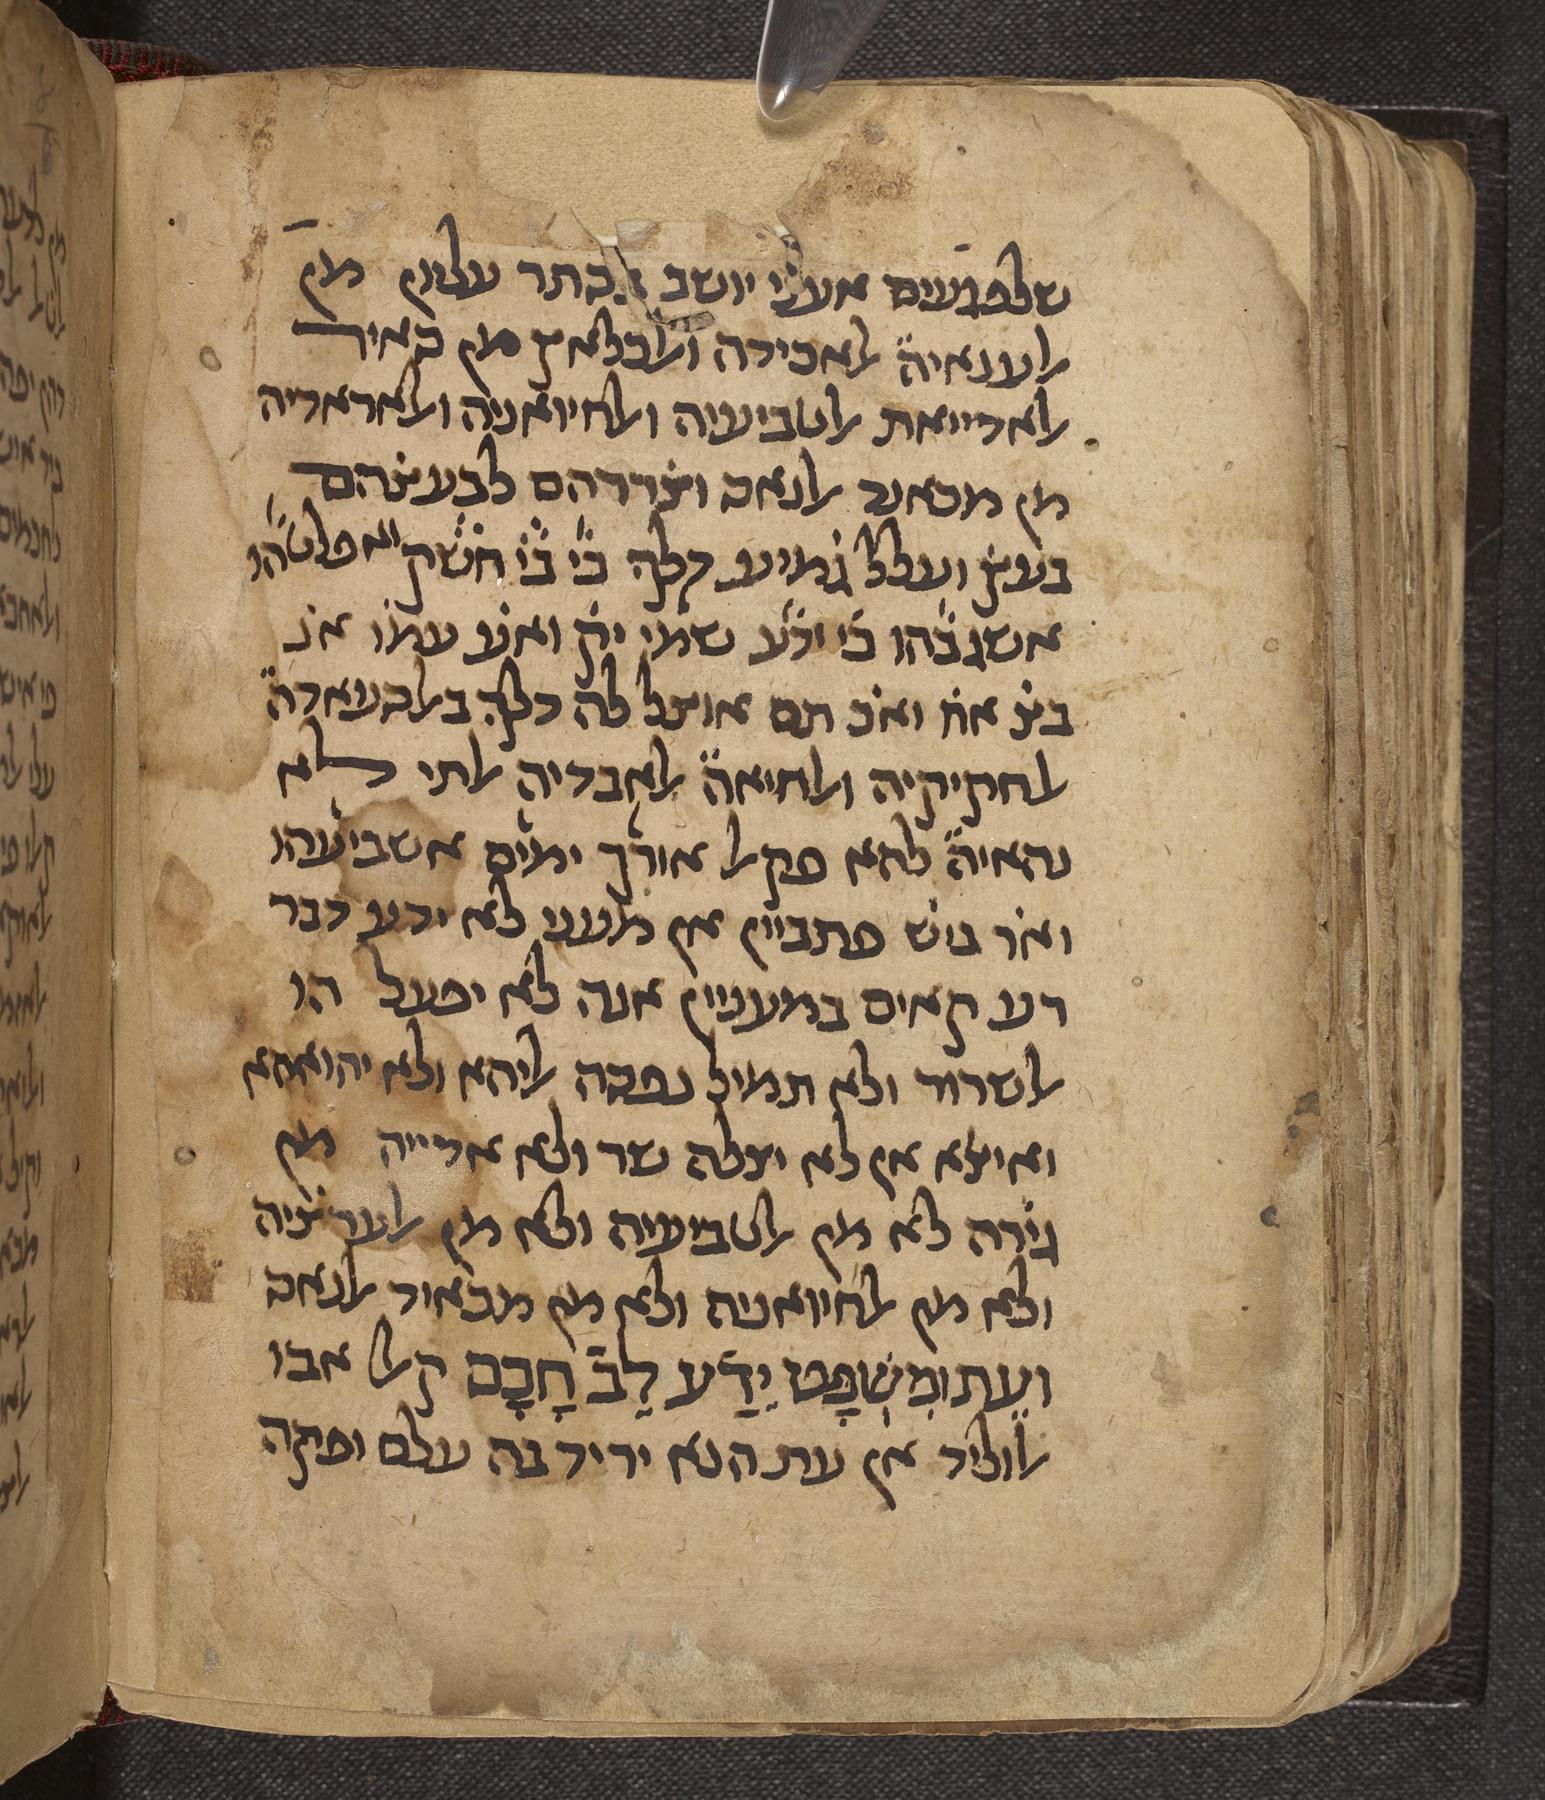 שלפגעים אעני יושב בסתר עליון מן
אלענאיה אלאכידה ואלכלאץ מן סאיר
אלאדייאת אלטביעיה ואלחיואניה ואלאראדיה
מן מכאוף אלנאס וצררהם לבעצהם
בעץ ועלל גמיע דלך כי בי חשק ואפלטהו
אשגבהו כי ידע שמי יק ואע עמו אנ
בצ אח ואכ תם אוצל לה דלך באלסעאדה
אלחקיקיה ואלחיאה אלאבדיה אלתי לא
נהאיה להא פקאל אורך ימים אשביעהו
ואר ביש פתביין אן מעני לא ידע דבר
רע קאים במעניין אנה לא יפעל הו
אלשרור ולא תמיל נפסה אליהא ולא יהואהא
ואיצא אן לא יצלה שר ולא אדייה מן
גירה לא מן אלטביעיה ולא מן אלערציה
ולא מן אלחיואניה ולא מן מכאוף אלנאס
ועת ומשפט יֵדַע לֵב חָכָם קאל אבו
אלוליד אן עת הנא יריד בה עלם ופקה